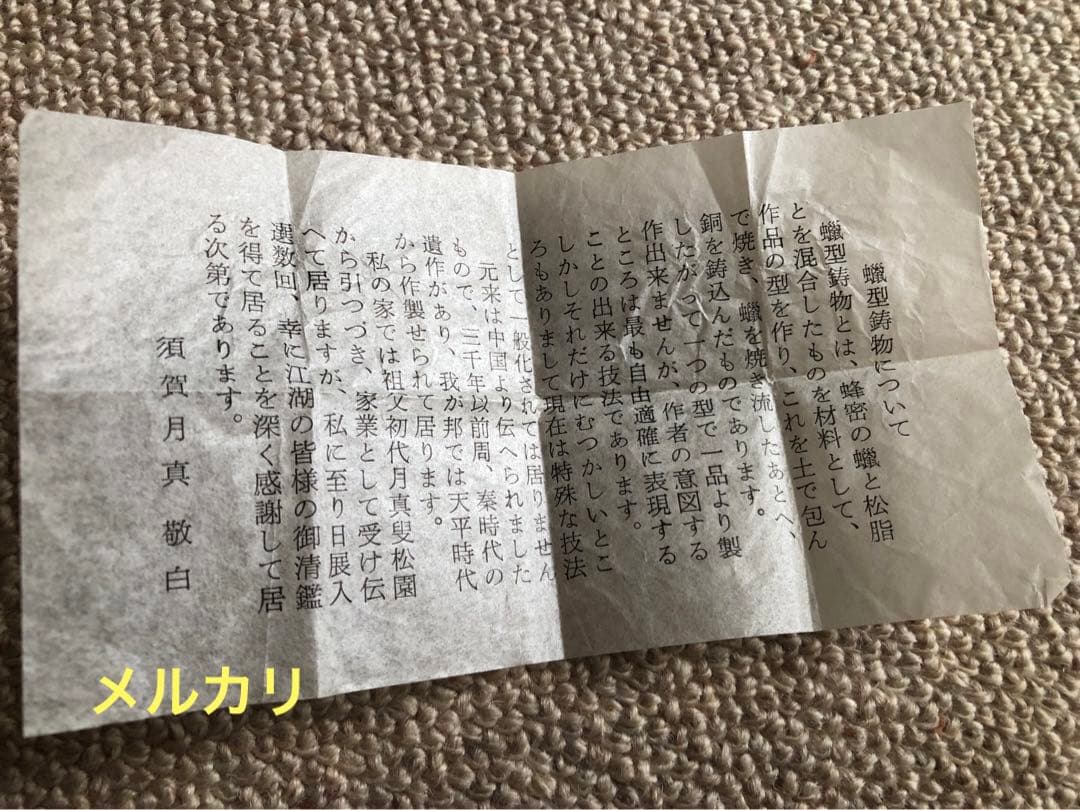 蠟型鋳物について
蠟型鋳物とは、蜂密の蠟と松脂
とを混合したものを材料として、
作品の型を作り、これを土で包ん
で焼き、蠟を焼き流したあとへ、
銅を鋳込んだものであります。
したがって一つの型で一品より製
作出来ませんが、作者の意図する
ところは最も自由適確に表現する
ことの出来る技法であります。
しかしそれだけにむつかしいとこ
ろもありまして現在は特殊な技法
として一般化されては居りません
元来は中国より伝へられました
もので、三千年以前周、秦時代の
遺作があり、我が邦では天平時代
から作製せられて居ります。
私の家では祖父初代月真叟松園
から引つづき、家業として受け伝
へて居りますが、私に至り日展入
選数回、幸に江湖の皆様の御清鑑
を得て居ることを深く感謝して居
る次第であります。
須賀月真敬白
メルカリ